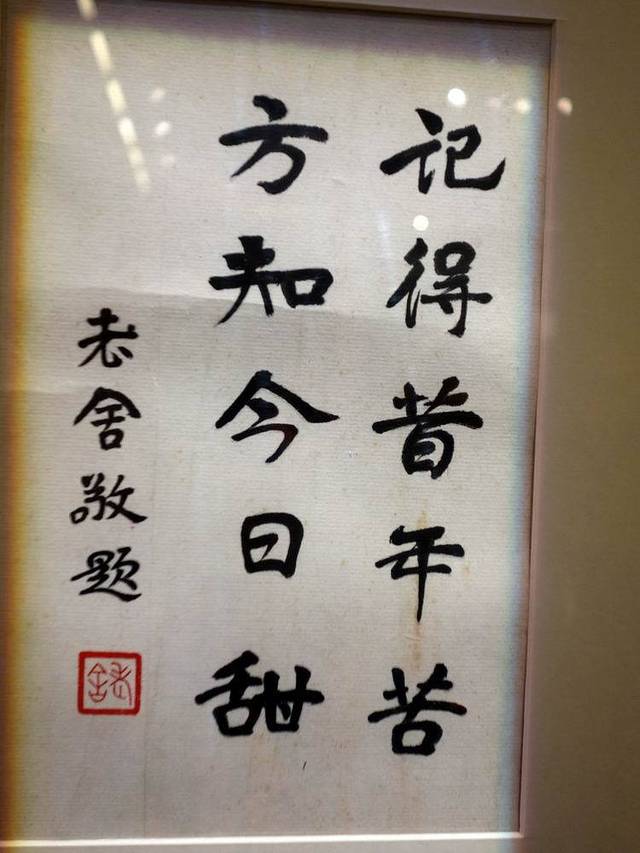 记得昔年苦
方知今日甜
老舍敬题
老舍